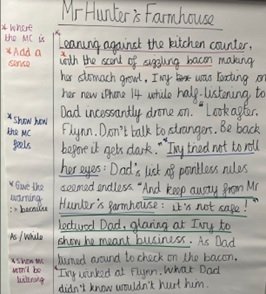 Mr Hunter's Farmhouse
* Where the MC is
* Add a sense
* Show how the MC feels
* Give the warning : = because
As / While
* Show MC won't be listening
Leaning against the kitchen counter,
with the scent of sizzling bacon making
her stomach growl, Ivy was texting on
her new iPhone 14 while half-listening to
Dad incessantly drone on. "Look after
Flynn. Don't talk to strangers. Be back
before it gets dark." Ivy tried not to roll
her eyes: Dad's list of pointless rules
seemed endless. "And keep away from Mr
Hunter's farmhouse: it's not safe!"
lectured Dad, glaring at Ivy to
show he meant business. As Dad
turned around to check on the bacon,
Ivy winked at Flynn. What Dad
didn't know wouldn't hurt him.